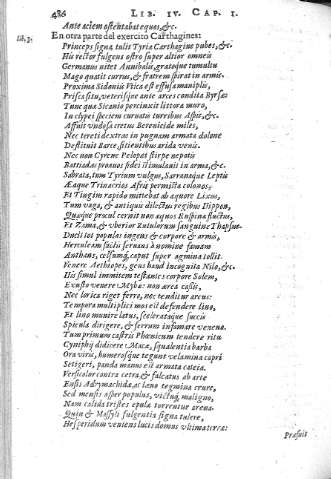 486 LIB. IV. CAP. I.
Ante aciem ostentabat equos, &c.
lib. 3. En otra parte del exercito Carthagines:
Princeps signa tulit Tyria Carthagine pubes, &c.
His rector fulgens ostro super altior omneis
Germanus nitet Annibalis, gratoque tumultu
Mago quatit currus, & fratrem spirat in armis.
Proxima Sidoniis Vtica est effusa maniplis,
Prisca situ, veterisque ante arces condita Byrsæ:
Tunc quæ Sicanio percinxit littora muro,
In clypei speciem curvatis turribus Aspis, &c.
Affuit vndosa cretus Berenicide miles,
Nec tereti dextras in pugnam armata dolone
Destituit Barce, sitientibus arida venis.
Nec non Cyrene Pelopei stirpe nepotis
Battiadas pravos fidei stimulavit in arma, &c.
Sabrata, tum Tyrium vulgus, Sarranaque Leptis
Æaque Trinacrios Afris permixta colonos,
Et Tingim rapido mittebat ab æquore Lixus,
Tum vaga, & antiquis dilectus regibus Hippon,
Quæque procul cavit non æquos Ruspina fluctus,
Et Zama, & vberior Rutulorum sanguine Thapsus.
Ducit tot populos ingens & corpore & armis,
Herculeam factis servans à nomine famam
Anthæus, celsumq; caput super agmina tollit.
Venere Aethiopes, gens haud incognita Nilo, &c.
His simul immitem testantes corpore Solem,
Exusti venere Nubæ: non ærea cassis,
Nec lorica riget ferro, nec tenditur arcus:
Tempora multiplici mos est defendere lino,
Et lino munire latus, scelerataque succis
Spicula dirigere, & ferrum infamare veneno.
Tum primum castris Phœnicum tendere ritu
Cyniphij didicere Macæ, squalentia barba
Ora viris, humerosque tegunt velamina capri
Setigeri, panda manus est armata cateia.
Versicolor contra cetra, & falcatus ab arte
Ensis Adyrmachida, ac læuo tegmina crure,
Sed mensis asper populus, victuq; maligno,
Nam calida tristes epulæ torrentur arena.
Quin & Massyli fulgentia signa tulere,
Hesperidum veniens lucis domus vltima terræ:
Præfuit